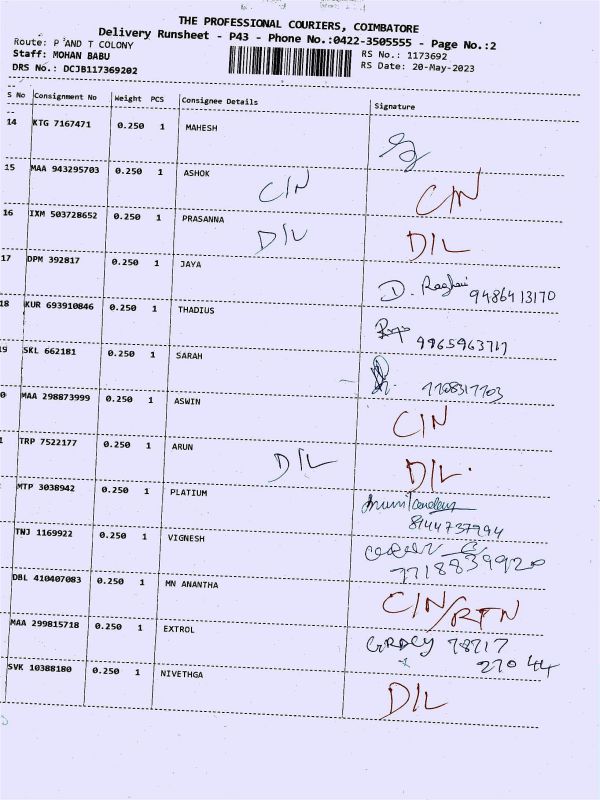 THE PROFESSIONAL COURIERS, COIMBATORE
Delivery Runsheet - P43 - Phone No.:0422-3505555 - Page No.:2
Route: P AND T COLONY RS No.: 1173692
Staff: MOHAN BABU RS Date: 20-May-2023
DRS No.: DCJB117369202
S No Consignment No Weight PCS Consignee Details Signature
14 KTG 7167471 0.250 1 MAHESH
15 MAA 943295703 0.250 1 ASHOK C/N C/N
16 IXM 503728652 0.250 1 PRASANNA D/L D/L
17 DPM 392817 0.250 1 JAYA D. 9486413170
18 KUR 693910846 0.250 1 THADIUS 9965963717
19 SKL 662181 0.250 1 SARAH 7708317703
0 MAA 298873999 0.250 1 ASWIN C/N
1 TRP 7522177 0.250 1 ARUN D/L D/L.
MTP 3038942 0.250 1 PLATIUM
8144737994
TNJ 1169922 0.250 1 VIGNESH
7718839920
DBL 410407083 0.250 1 MN ANANTHA C/N/RTN
MAA 299815718 0.250 1 EXTROL 78717
270 44
SVK 10388180 0.250 1 NIVETHGA D/L